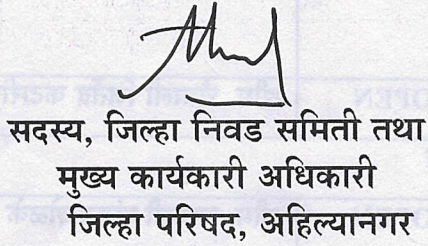 सदस्य, जिल्हा निवड समिती तथा
मुख्य कार्यकारी अधिकारी
जिल्हा परिषद, अहिल्यानगर